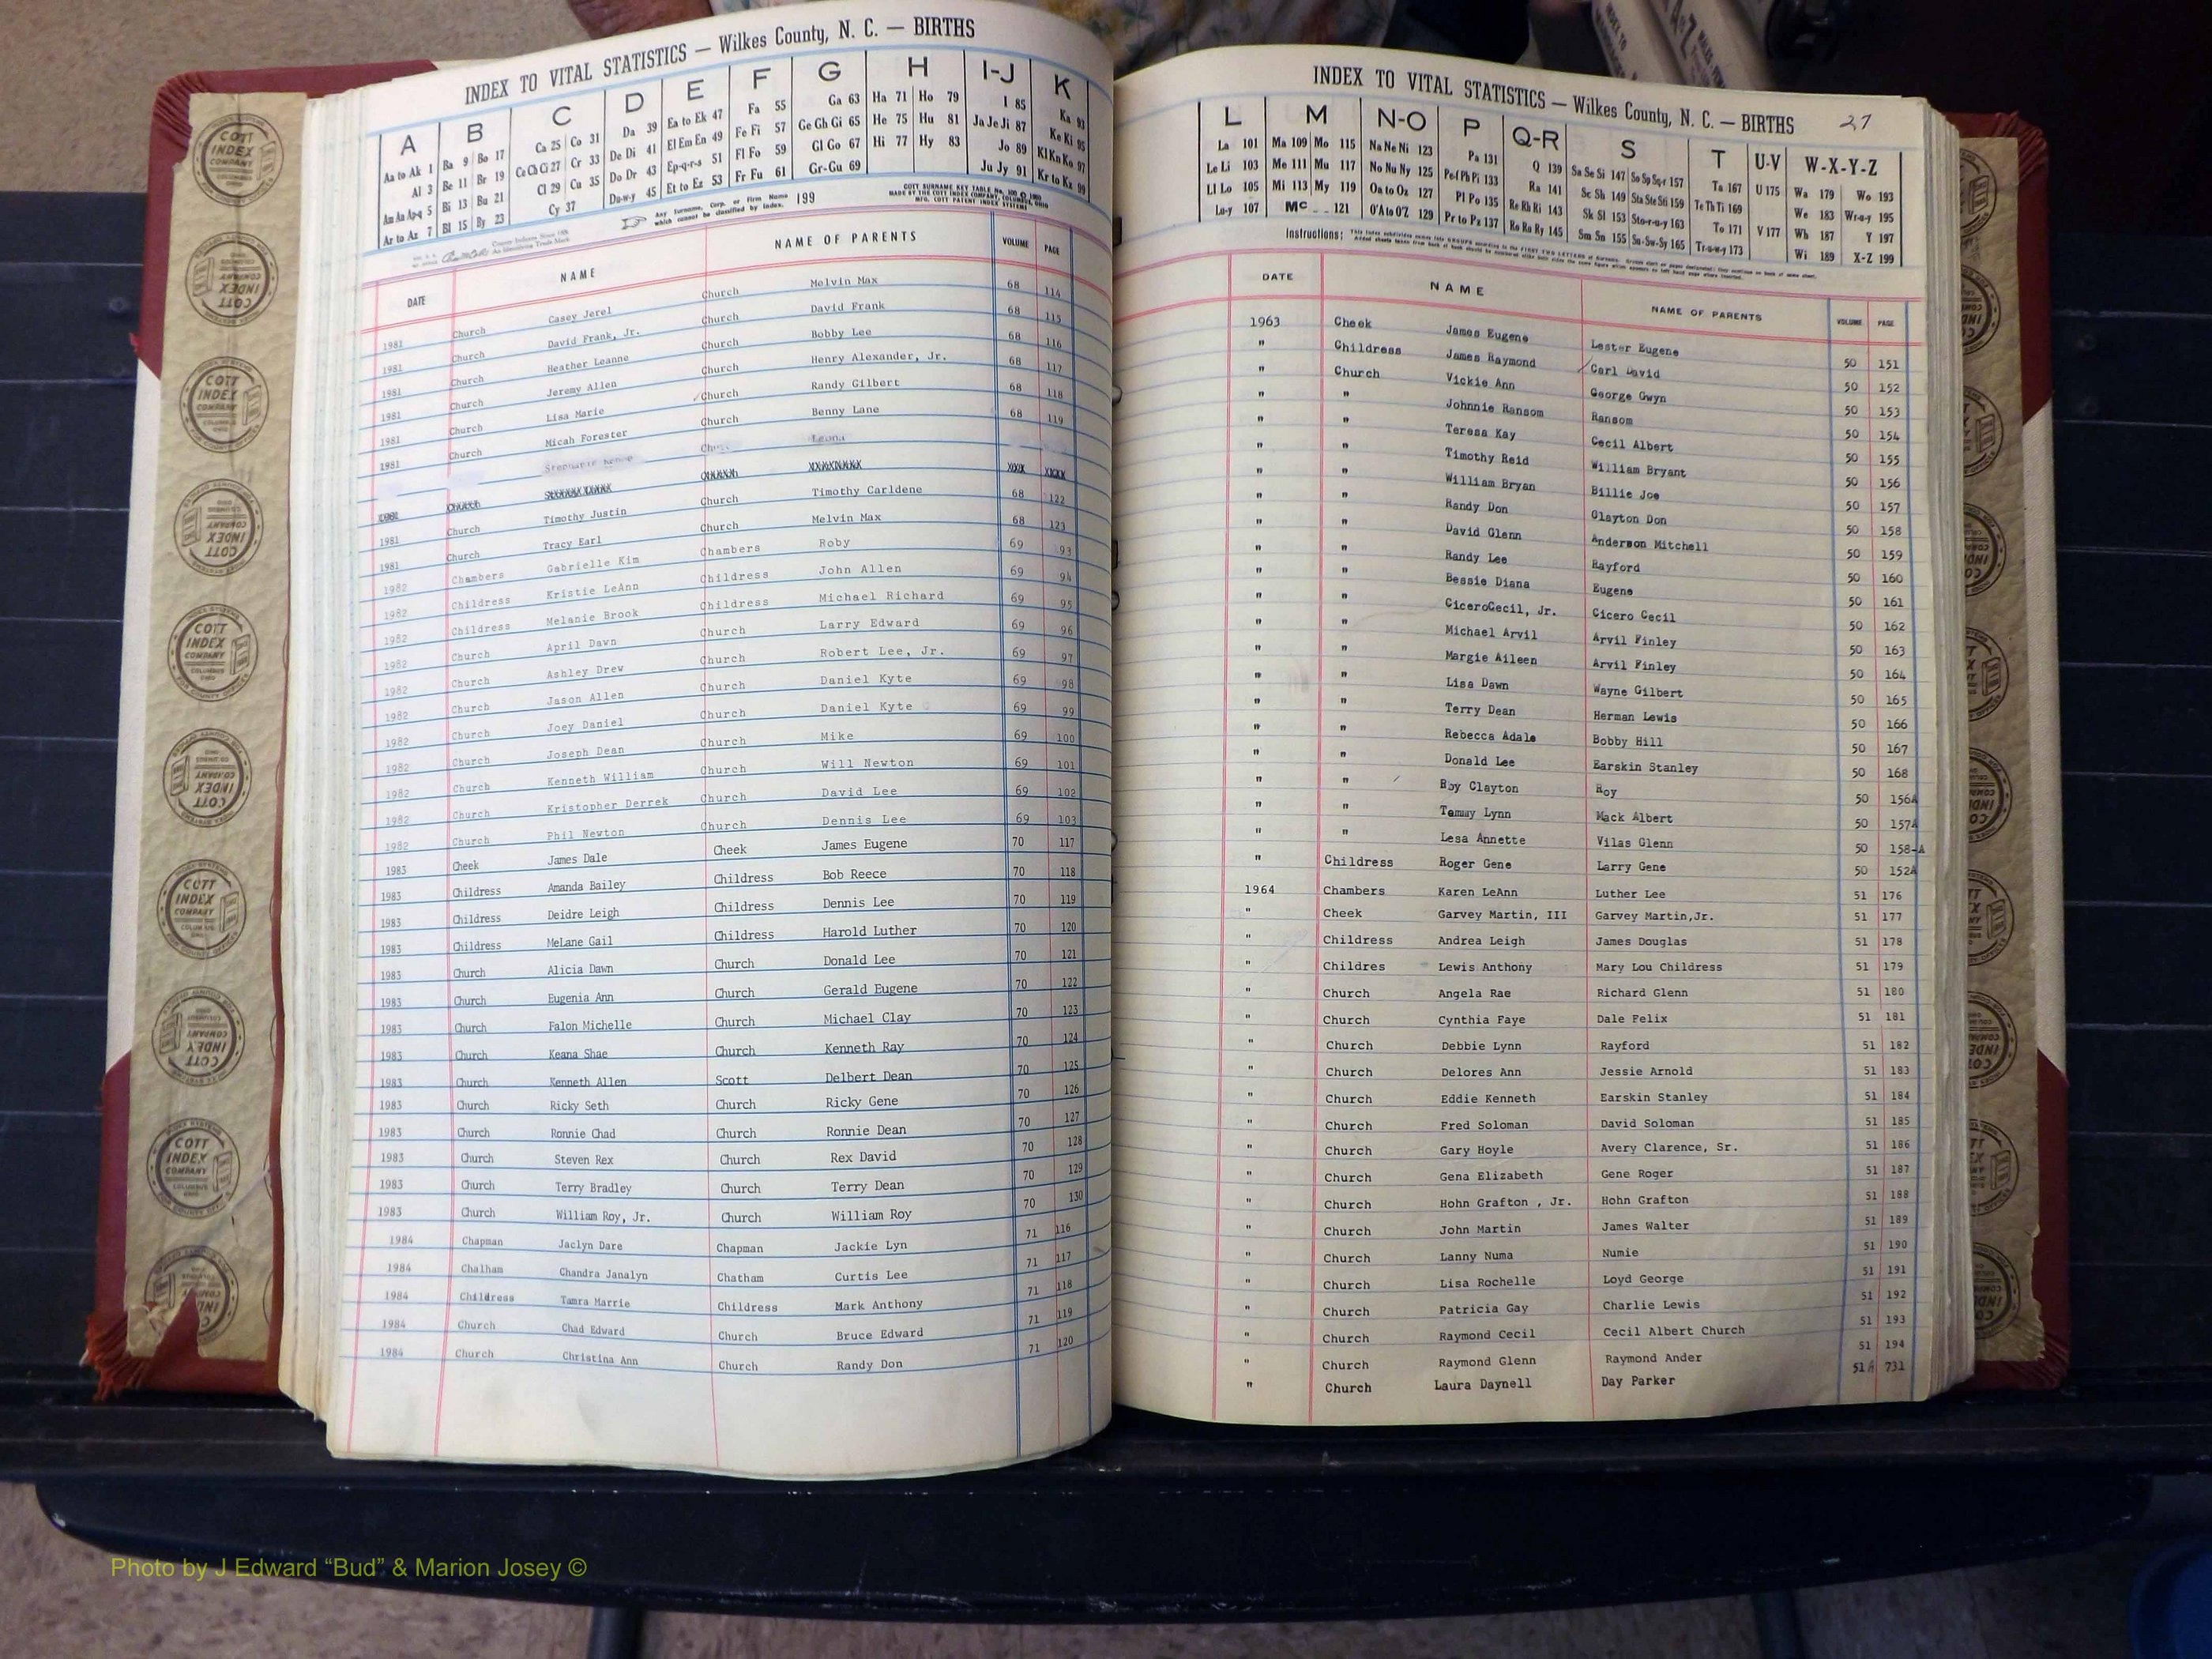 INDEX TO VITAL STATISTICS — Wilkes County, N. C. — BIRTHS
A B C D E F G H I-J K
Aa to Ak 1 Ba 9 Bo 17 Ca 25 Co 31 Da 39 Ea to Ek 47 Fa 55 Ga 63 Ha 71 Ho 79 I 85 Ka 93
Al 3 Be 11 Br 19 Ce Ch Ci 27 Cr 33 De Di 41 El Em En 49 Fe Fi 57 Ge Gh Gi 65 He 75 Hu 81 Ja Je Ji 87 Ke Ki 95
Am An Ap-q 5 Bi 13 Bu 21 Cl 29 Cu 35 Do Dr 43 Ep-q-r-s 51 Fl Fo 59 Gl Go 67 Hi 77 Hy 83 Jo 89 Kl Kn Ko 97
Ar to Az 7 Bl 15 By 23 Cy 37 Du-w-y 45 Et to Ez 53 Fr Fu 61 Gr-Gu 69 Ju Jy 91 Kr to Kz 99
Any Surname, Corp. or Firm Name which cannot be classified by index. 199
DATE NAME NAME OF PARENTS VOLUME PAGE
1981 Church Casey Jerel Church Melvin Max 68 114
1981 Church David Frank, Jr. Church David Frank 68 115
1981 Church Heather Leanne Church Bobby Lee 68 116
1981 Church Jeremy Allen Church Henry Alexander, Jr. 68 117
1981 Church Lisa Marie Church Randy Gilbert 68 118
1981 Church Micah Forester Church Benny Lane 68 119
Leona
1981 Church Timothy Justin Church Timothy Carldene 68 122
1981 Church Tracy Earl Church Melvin Max 68 123
1982 Chambers Gabrielle Kim Chambers Roby 69 93
1982 Childress Kristie LeAnn Childress John Allen 69 94
1982 Childress Melanie Brook Childress Michael Richard 69 95
1982 Church April Dawn Church Larry Edward 69 96
1982 Church Ashley Drew Church Robert Lee, Jr. 69 97
1982 Church Jason Allen Church Daniel Kyte 69 98
1982 Church Joey Daniel Church Daniel Kyte 69 99
1982 Church Joseph Dean Church Mike 69 100
1982 Church Kenneth William Church Will Newton 69 101
1982 Church Kristopher Derrek Church David Lee 69 102
1982 Church Phil Newton Church Dennis Lee 69 103
1983 Cheek James Dale Cheek James Eugene 70 117
1983 Childress Amanda Bailey Childress Bob Reece 70 118
1983 Childress Deidre Leigh Childress Dennis Lee 70 119
1983 Childress MeLane Gail Childress Harold Luther 70 120
1983 Church Alicia Dawn Church Donald Lee 70 121
1983 Church Eugenia Ann Church Gerald Eugene 70 122
1983 Church Falon Michelle Church Michael Clay 70 123
1983 Church Keana Shae Church Kenneth Ray 70 124
1983 Church Kenneth Allen Scott Delbert Dean 70 125
1983 Church Ricky Seth Church Ricky Gene 70 126
1983 Church Ronnie Chad Church Ronnie Dean 70 127
1983 Church Steven Rex Church Rex David 70 128
1983 Church Terry Bradley Church Terry Dean 70 129
1983 Church William Roy, Jr. Church William Roy 70 130
1984 Chapman Jaclyn Dare Chapman Jackie Lyn 71 116
1984 Chalham Chandra Janalyn Chatham Curtis Lee 71 117
1984 Childress Tamra Marrie Childress Mark Anthony 71 118
1984 Church Chad Edward Church Bruce Edward 71 119
1984 Church Christina Ann Church Randy Don 71 120
INDEX TO VITAL STATISTICS — Wilkes County, N. C. — BIRTHS 27
L M N-O P Q-R S T U-V W-X-Y-Z
La 101 Ma 109 Mo 115 Na Ne Ni 123 Pa 131 Q 139 Sa Se Si 147 So Sp Sq-r 157 Ta 167 U 175 Wa 179 Wo 193
Le Li 103 Me 111 Mu 117 No Nu Ny 125 Pe-f Ph Pi 133 Ra 141 Sc Sh 149 Sta Ste Sti 159 Te Th Ti 169 We 183 Wr-u-y 195
Ll Lo 105 Mi 113 My 119 Oa to Oz 127 Pl Po 135 Re Rh Ri 143 Sk Sl 153 Sto-r-u-y 163 To 171 V 177 Wh 187 Y 197
Lu-y 107 Mc 121 O'A to O'Z 129 Pr to Pz 137 Ro Ru Ry 145 Sm Sn 155 Su-Sw-Sy 165 Tr-u-w-y 173 Wi 189 X-Z 199
Instructions:
DATE NAME NAME OF PARENTS VOLUME PAGE
1963 Cheek James Eugene Lester Eugene 50 151
" Childress James Raymond Carl David 50 152
" Church Vickie Ann George Gwyn 50 153
" " Johnnie Ransom Ransom 50 154
" " Teresa Kay Cecil Albert 50 155
" " Timothy Reid William Bryant 50 156
" " William Bryan Billie Joe 50 157
" " Randy Don Clayton Don 50 158
" " David Glenn Anderson Mitchell 50 159
" " Randy Lee Rayford 50 160
" " Bessie Diana Eugene 50 161
" " CiceroCecil, Jr. Cicero Cecil 50 162
" " Michael Arvil Arvil Finley 50 163
" " Margie Aileen Arvil Finley 50 164
" " Lisa Dawn Wayne Gilbert 50 165
" " Terry Dean Herman Lewis 50 166
" " Rebecca Adale Bobby Hill 50 167
" " Donald Lee Earskin Stanley 50 168
" " Roy Clayton Roy 50 156A
" " Tammy Lynn Mack Albert 50 157A
" " Lesa Annette Vilas Glenn 50 158-A
" Childress Roger Gene Larry Gene 50 152A
1964 Chambers Karen LeAnn Luther Lee 51 176
" Cheek Garvey Martin, III Garvey Martin,Jr. 51 177
" Childress Andrea Leigh James Douglas 51 178
" Childres Lewis Anthony Mary Lou Childress 51 179
" Church Angela Rae Richard Glenn 51 180
" Church Cynthia Faye Dale Felix 51 181
" Church Debbie Lynn Rayford 51 182
" Church Delores Ann Jessie Arnold 51 183
" Church Eddie Kenneth Earskin Stanley 51 184
" Church Fred Soloman David Soloman 51 185
" Church Gary Hoyle Avery Clarence, Sr. 51 186
" Church Gena Elizabeth Gene Roger 51 187
" Church Hohn Grafton , Jr. Hohn Grafton 51 188
" Church John Martin James Walter 51 189
" Church Lanny Numa Numie 51 190
" Church Lisa Rochelle Loyd George 51 191
" Church Patricia Gay Charlie Lewis 51 192
" Church Raymond Cecil Cecil Albert Church 51 193
" Church Raymond Glenn Raymond Ander 51 194
" Church Laura Daynell Day Parker 51A 731
COTT INDEX COMPANY
Photo by J Edward “Bud” & Marion Josey ©